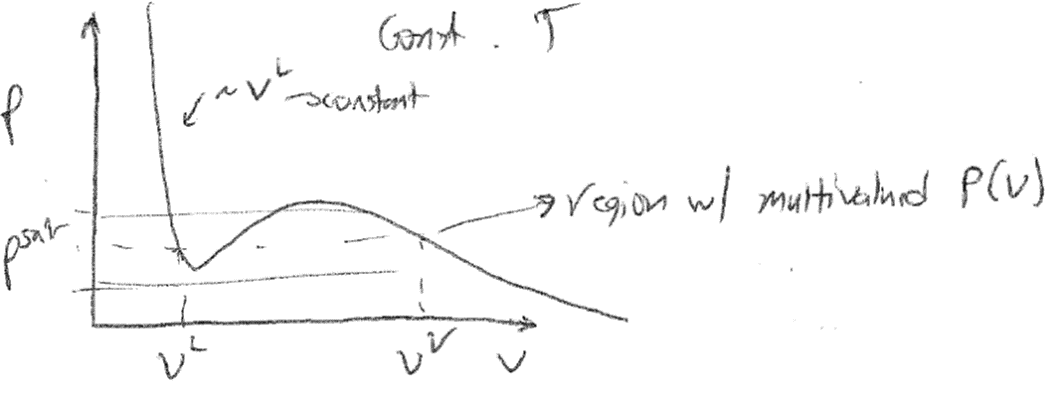 Const. T
~ V^L → constant
P
→ region w/ multivalued P(V)
P^sat
V^L
V^V
V